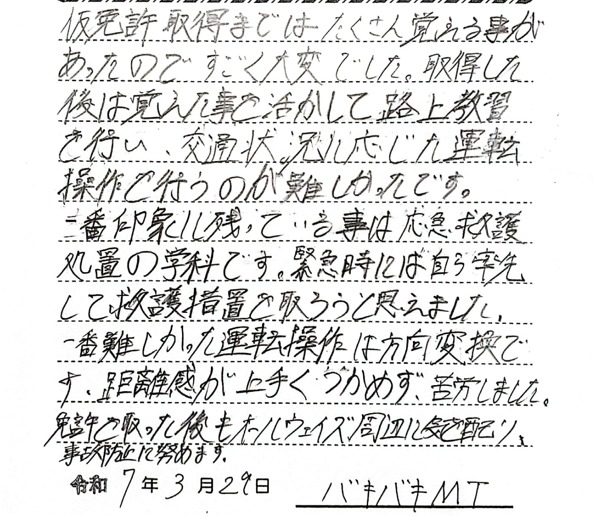 仮免許取得まではたくさん覚える事が
あったのですごく大変でした。取得した
後は覚えた事を活かして路上教習
を行い、交通状況に応じた運転
操作を行うのが難しかったです。
一番印象に残っている事は応急救護
処置の学科です。緊急時には自ら率先
して救護措置を取ろうと思えました。
一番難しかった運転操作は方向変換で
す。距離感が上手くつかめず、苦労しました。
免許を取った後もオールウェイズ周辺に気を配り、
事故防止に努めます。
令和7年3月29日 バキバキMT